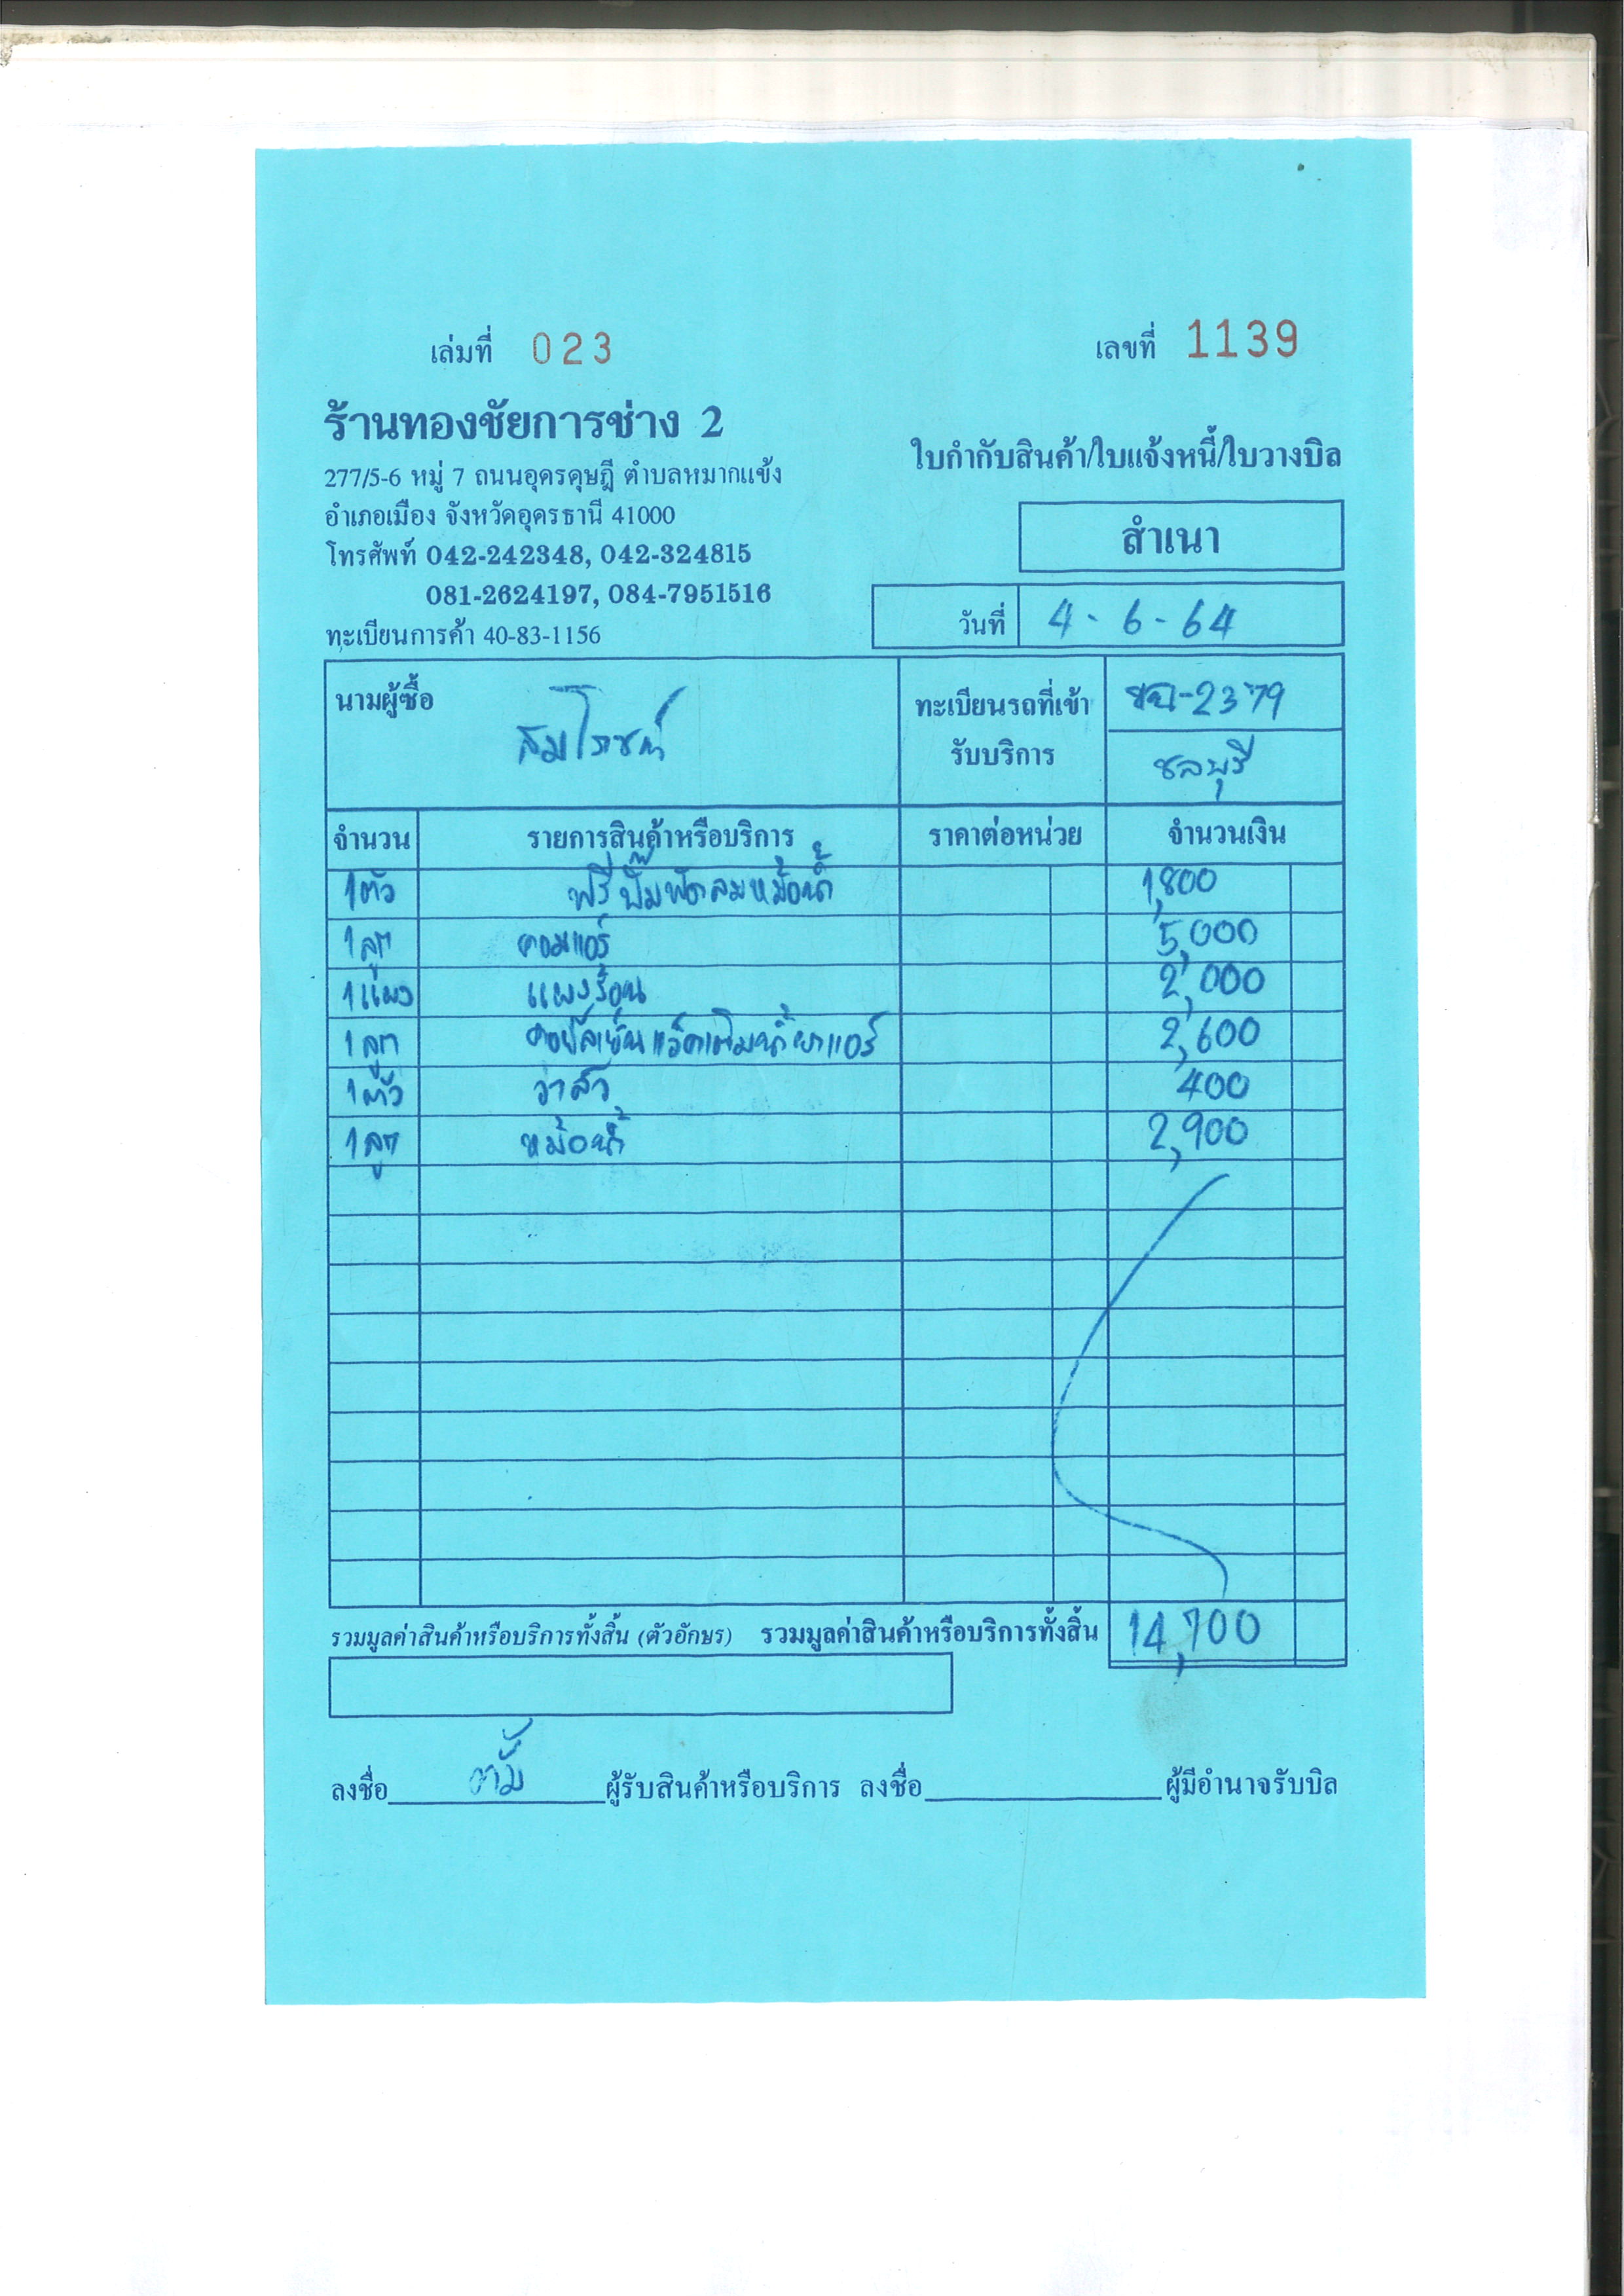 เล่มที่ 023 เลขที่ 1139
ร้านทองชัยการช่าง 2
ใบกำกับสินค้า/ใบแจ้งหนี้/ใบวางบิล
277/5-6 หมู่ 7 ถนนอุดรดุษฎี ตำบลหมากแข้ง
อำเภอเมือง จังหวัดอุดรธานี 41000
สำเนา
โทรศัพท์ 042-242348, 042-324815
081-2624197, 084-7951516
วันที่ 4-6-64
ทะเบียนการค้า 40-83-1156
นามผู้ซื้อ สมโภชน์ ทะเบียนรถที่เข้า -2379
รับบริการ ชลบุรี
จำนวน รายการสินค้าหรือบริการ ราคาต่อหน่วย จำนวนเงิน
1ตัว ฟรีปั๊มพัดลมหม้อน้ำ 1,800
1ลูก คอมแอร์ 5,000
1แผง แผงร้อน 2,000
1ลูก คอยล์เย็น เติมน้ำยาแอร์ 2,600
1ตัว วาล์ว 400
1ลูก หม้อน้ำ 2,900
รวมมูลค่าสินค้าหรือบริการทั้งสิ้น (ตัวอักษร) รวมมูลค่าสินค้าหรือบริการทั้งสิ้น 14,700
ลงชื่อ ผู้รับสินค้าหรือบริการ ลงชื่อ ผู้มีอำนาจรับบิล